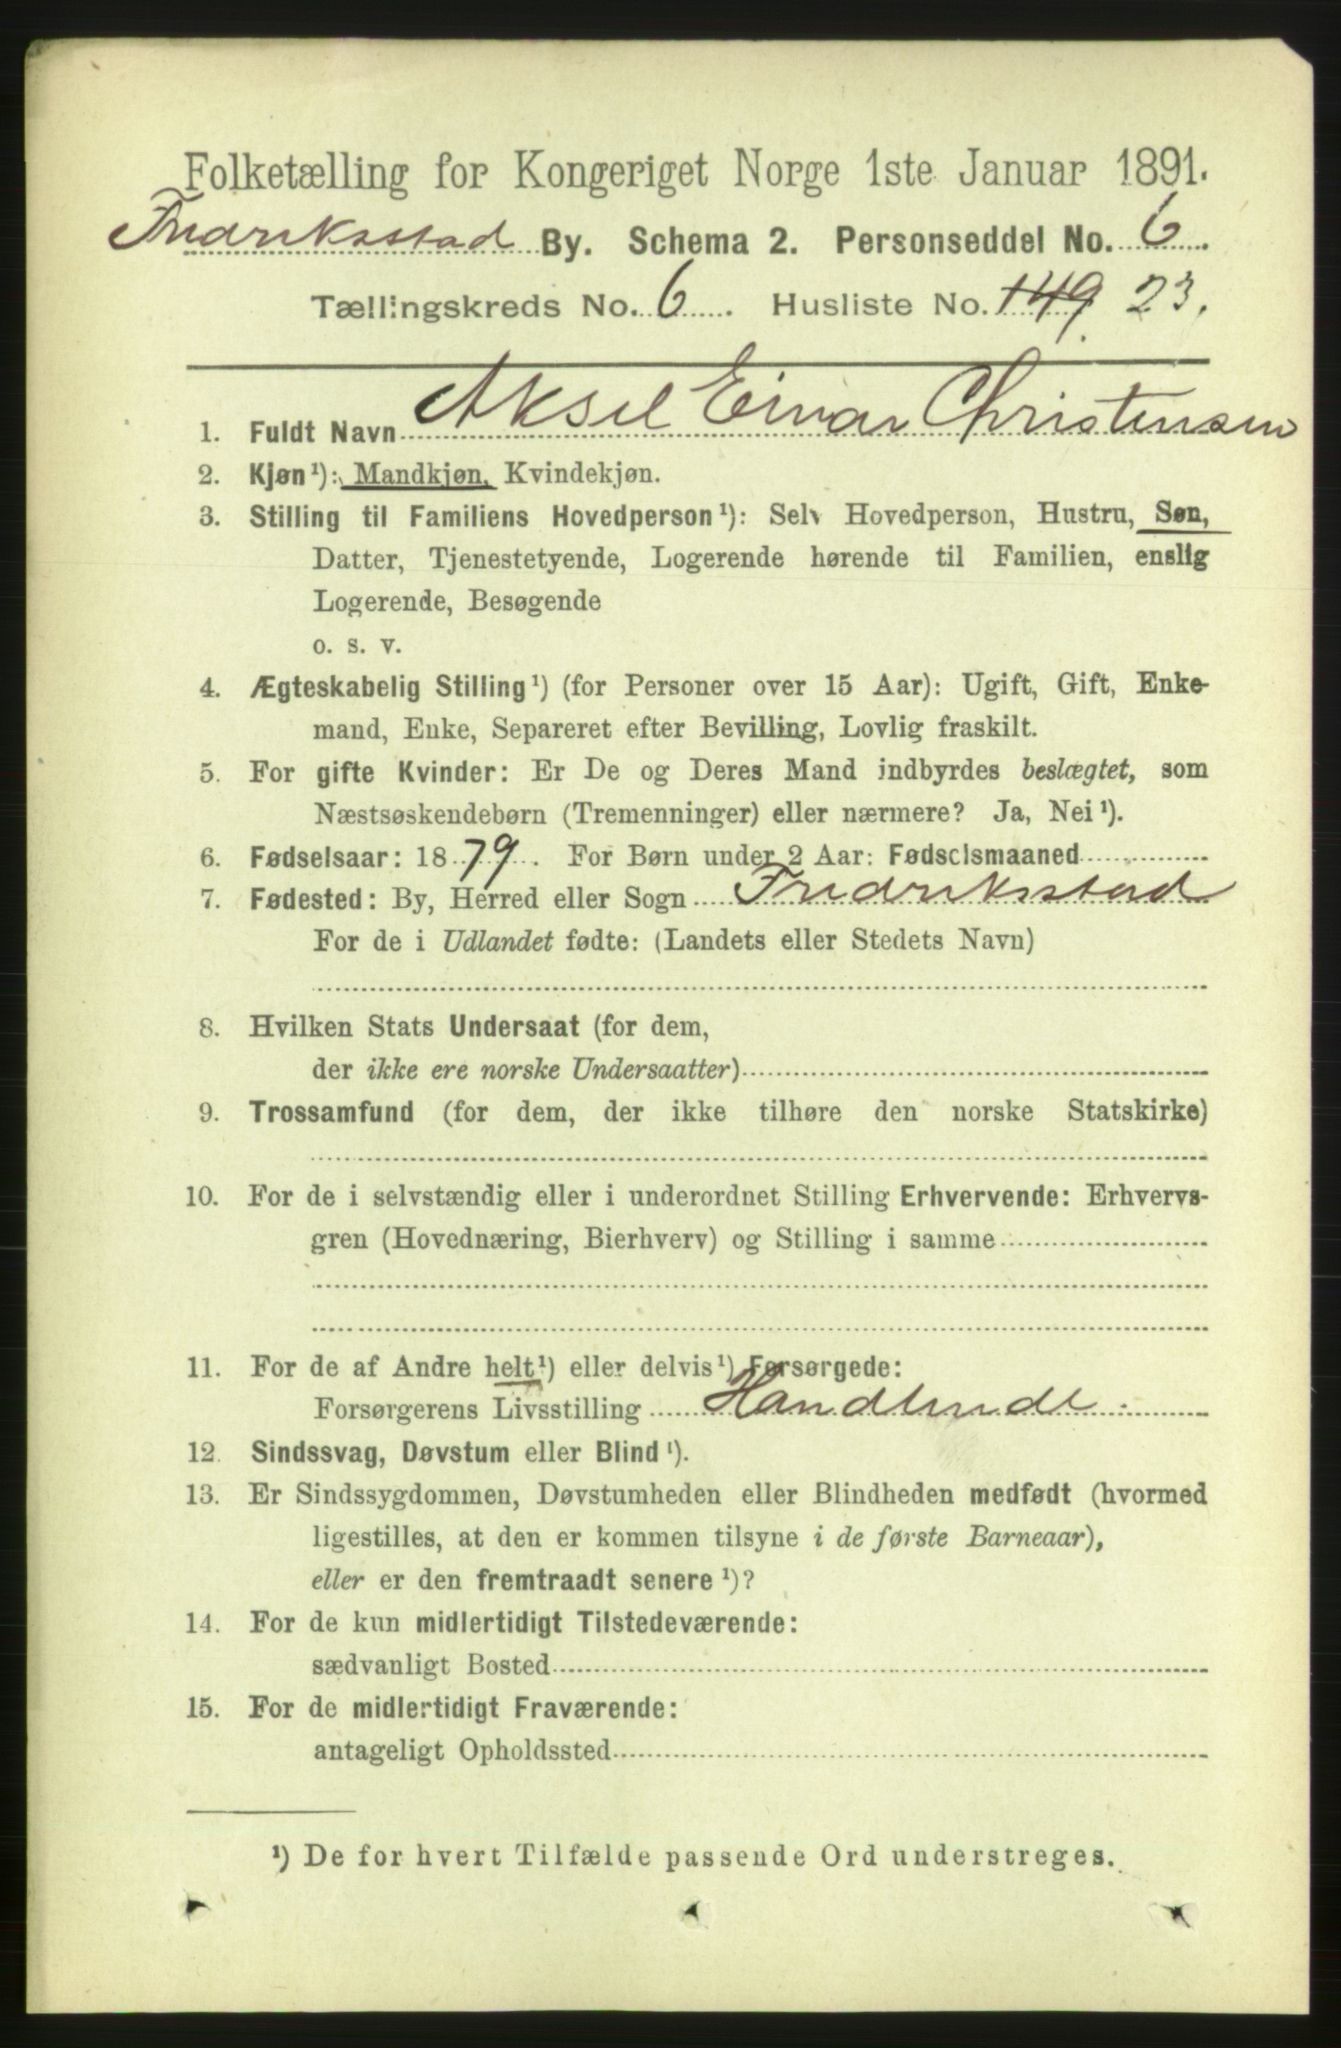 Folketælling for Kongeriget Norge 1ste Januar 1891.
Fredriksstad By. Schema 2. Personseddel No. 6.
Tællingskreds No. 6. Husliste No. 149 23.
1. Fuldt Navn Aksel Einar Christensen
2. Kjøn¹): Mandkjøn, Kvindekjøn.
3. Stilling til Familiens Hovedperson¹): Selv Hovedperson, Hustru, Søn,
Datter, Tjenestetyende, Logerende hørende til Familien, enslig
Logerende, Besøgende
o. s. v.
4. Ægteskabelig Stilling¹) (for Personer over 15 Aar): Ugift, Gift, Enke-
mand, Enke, Separeret efter Bevilling, Lovlig fraskilt.
5. For gifte Kvinder: Er De og Deres Mand indbyrdes beslægtet, som
Næstsøskendebørn (Tremenninger) eller nærmere? Ja, Nei¹).
6. Fødselsaar: 1879. For Børn under 2 Aar: Fødselsmaaned
7. Fødested: By, Herred eller Sogn Fredriksstad
For de i Udlandet fødte: (Landets eller Stedets Navn)
8. Hvilken Stats Undersaat (for dem,
der ikke ere norske Undersaatter)
9. Trossamfund (for dem, der ikke tilhøre den norske Statskirke)
10. For de i selvstændig eller i underordnet Stilling Erhvervende: Erhvervs-
gren (Hovednæring, Bierhverv) og Stilling i samme
11. For de af Andre helt¹) eller delvis¹) Forsørgede:
Forsørgerens Livsstilling Handlende.
12. Sindssvag, Døvstum eller Blind¹).
13. Er Sindssygdommen, Døvstumheden eller Blindheden medfødt (hvormed
ligestilles, at den er kommen tilsyne i de første Barneaar),
eller er den fremtraadt senere¹)?
14. For de kun midlertidigt Tilstedeværende:
sædvanligt Bosted
15. For de midlertidigt Fraværende:
antageligt Opholdssted
¹) De for hvert Tilfælde passende Ord understreges.